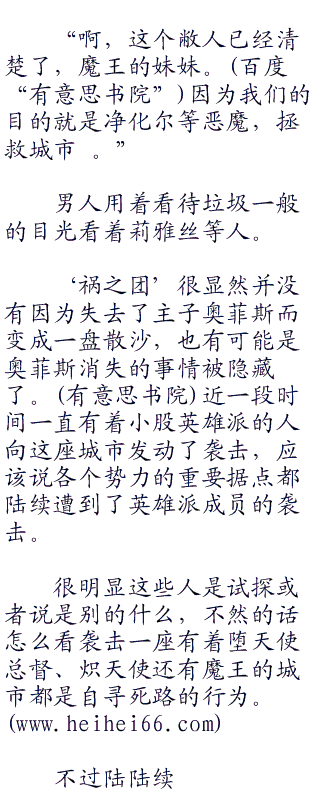 “啊，这个敝人已经清
楚了，魔王的妹妹。(百度
“有意思书院”)因为我们的
目的就是净化尔等恶魔，拯
救城市 。”
男人用着看待垃圾一般
的目光看着莉雅丝等人。
‘祸之团’很显然并没
有因为失去了主子奥菲斯而
变成一盘散沙，也有可能是
奥菲斯消失的事情被隐藏
了。(有意思书院)近一段时
间一直有着小股英雄派的人
向这座城市发动了袭击，应
该说各个势力的重要据点都
陆续遭到了英雄派成员的袭
击。
很明显这些人是试探或
者说是别的什么，不然的话
怎么看袭击一座有着堕天使
总督、炽天使还有魔王的城
市都是自寻死路的行为。
(www.heihei66.com)
不过陆陆续